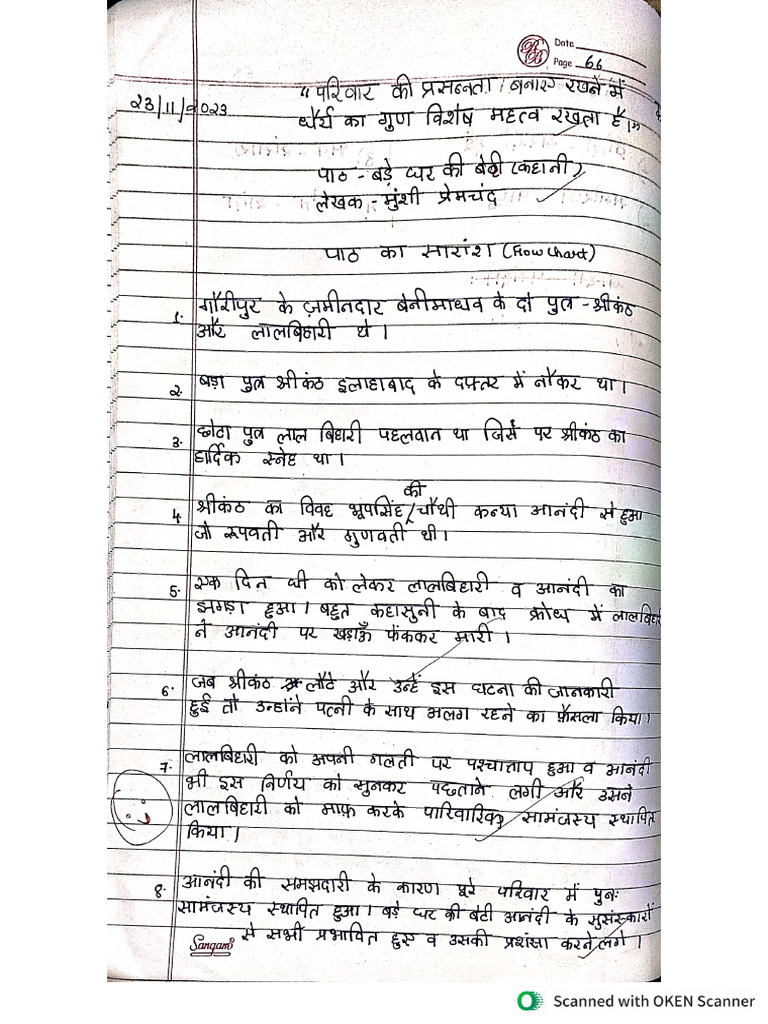 Date
Page 66
23/11/2023
"परिवार की प्रसन्नता बनाए रखने में
धैर्य का गुण विशेष महत्व रखता है।"
पाठ - बड़े घर की बेटी (कहानी)
लेखक - मुंशी प्रेमचंद
पाठ का सारांश (Flow Chart)
1. गौरीपुर के ज़मीनदार बेनीमाधव के दो पुत्र - श्रीकंठ
और लालबिहारी थे।
2. बड़ा पुत्र श्रीकंठ इलाहाबाद के दफ्तर में नौकर था।
3. छोटा पुत्र लाल बिहारी पहलवान था जिस पर श्रीकंठ का
हार्दिक स्नेह था।
4 श्रीकंठ का विवह भूपसिंह की चौथी कन्या आनंदी से हुआ
जो रूपवती और गुणवती थी।
5. एक दिन घी को लेकर लालबिहारी व आनंदी का
झगड़ा हुआ। बहुत कहासुनी के बाद क्रोध में लालबिहारी
ने आनंदी पर खड़ाऊँ फेंककर मारी।
6. जब श्रीकंठ लौटे और उन्हें इस घटना की जानकारी
हुई तो उन्होंने पत्नी के साथ अलग रहने का फ़ैसला किया।
7. लालबिहारी को अपनी गलती पर पश्चात्ताप हुआ व आनंदी
भी इस निर्णय को सुनकर पछताने लगी और उसने
लालबिहारी को माफ़ करके पारिवारिक सामंजस्य स्थापित
किया।
8. आनंदी की समझदारी के कारण पूरे परिवार में पुनः
सामंजस्य स्थापित हुआ। बड़े घर की बेटी आनंदी के सुसंस्कारों
से सभी प्रभावित हुए व उसकी प्रशंसा करने लगे।
Sangam
Scanned with OKEN Scanner